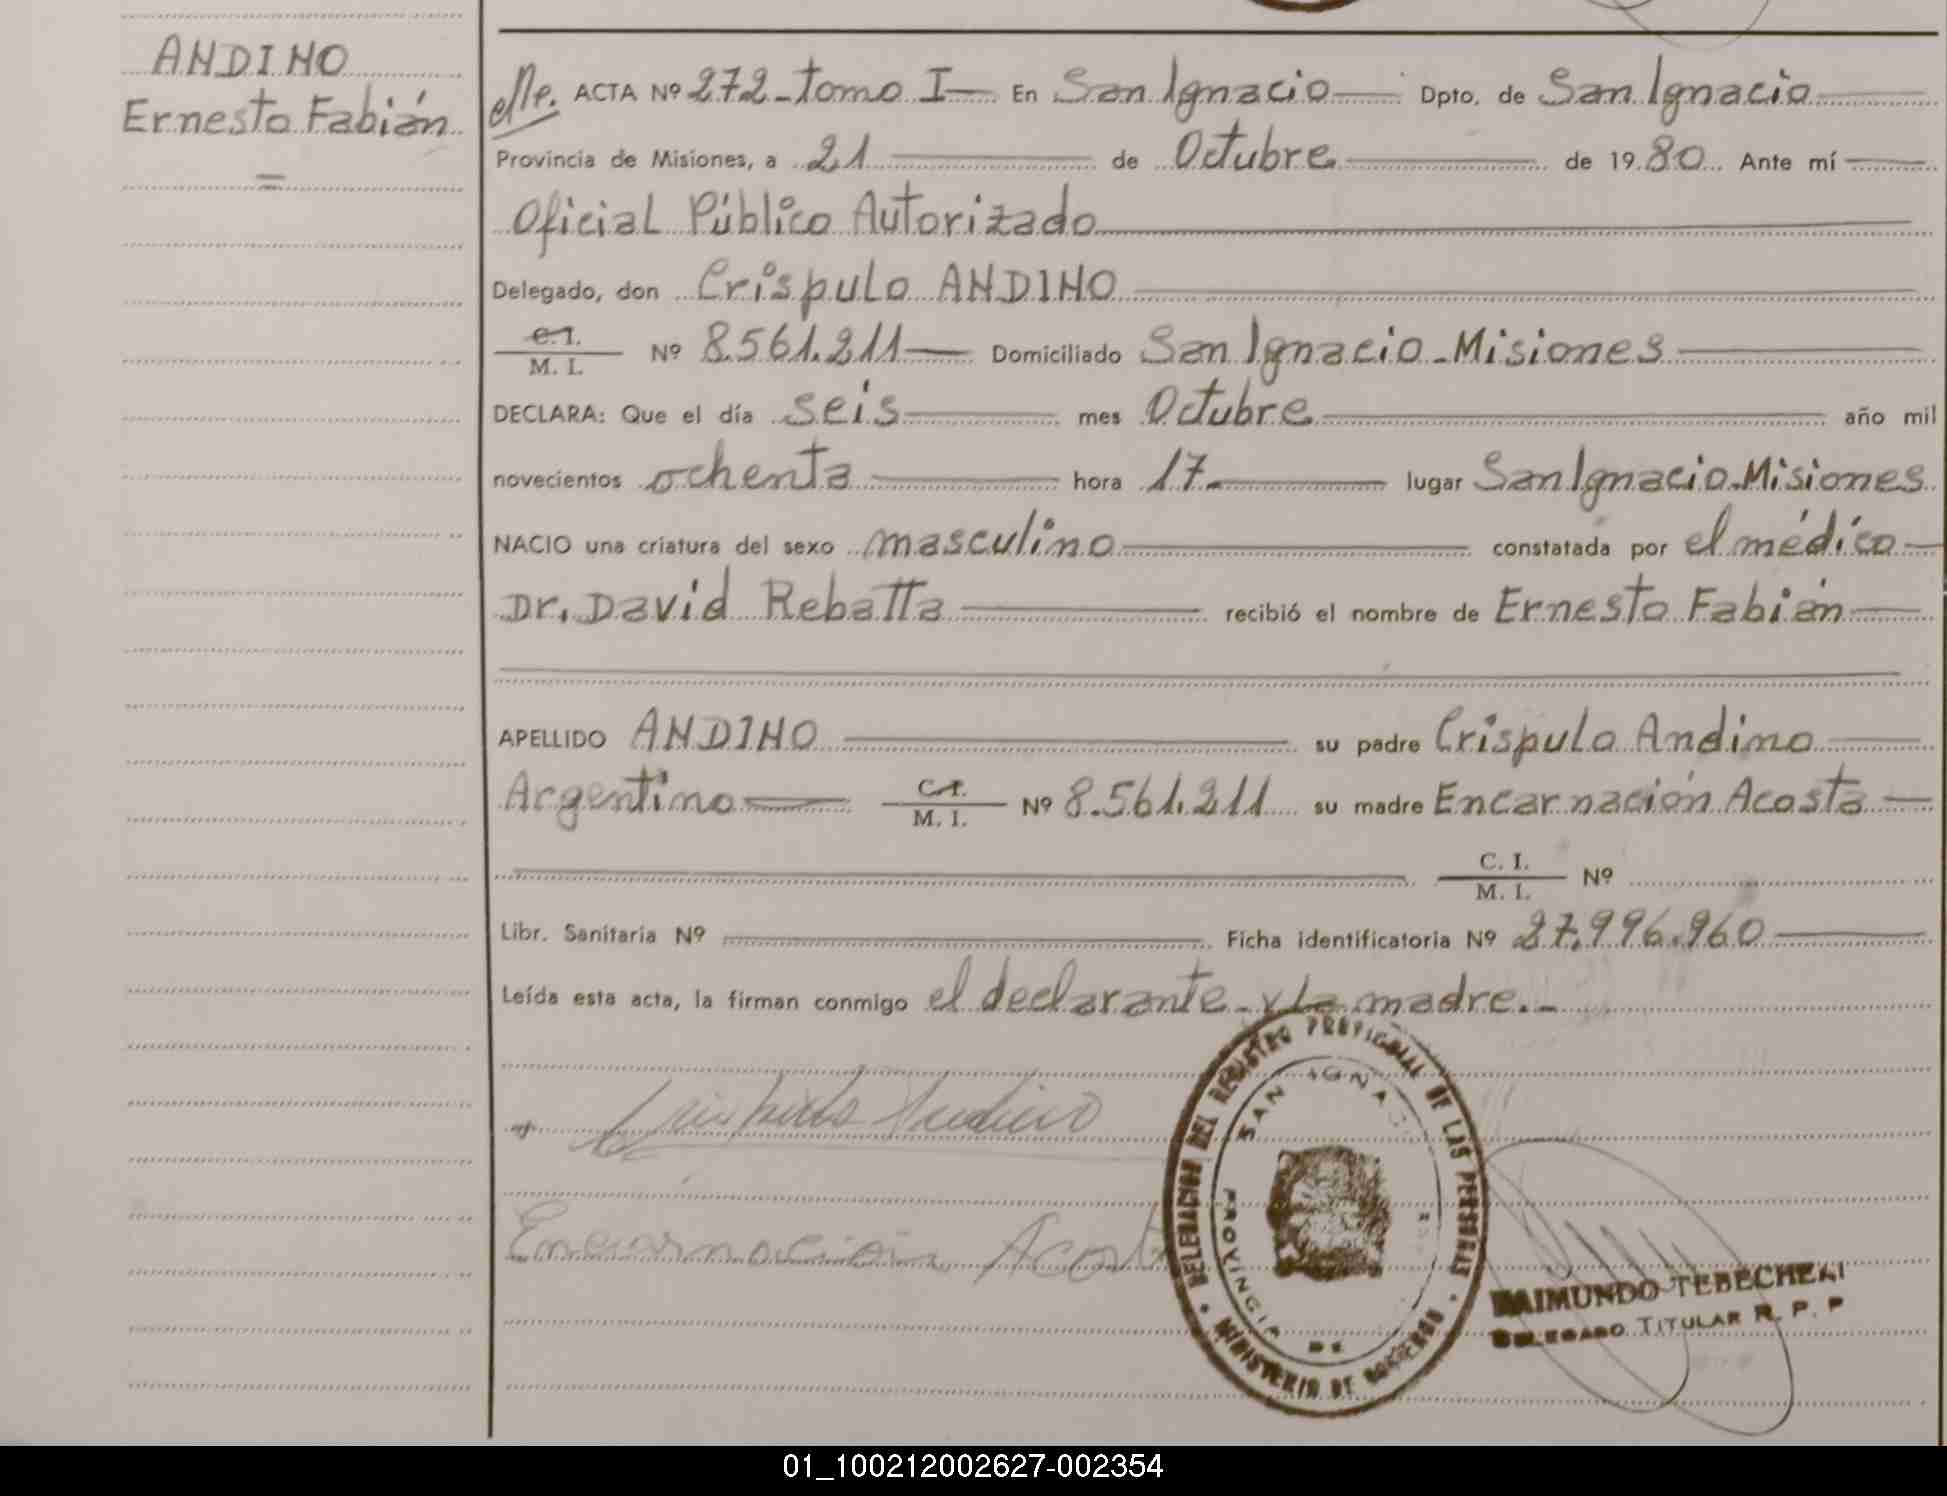 ANDINO
Ernesto Fabián
ACTA Nº 272 - tomo I En San Ignacio Dpto. de San Ignacio
Provincia de Misiones, a 21 de Octubre de 1980 Ante mí
Oficial Público Autorizado
Delegado, don Crispulo ANDINO
C. I.
M. I. Nº 8.561.211 Domiciliado San Ignacio - Misiones
DECLARA: Que el día seis mes Octubre año mil
novecientos ochenta hora 17- lugar San Ignacio - Misiones
NACIO una criatura del sexo masculino constatada por el médico
Dr. David Rebatta recibió el nombre de Ernesto Fabián
APELLIDO ANDINO su padre Crispulo Andino
Argentino C. I. M. I. Nº 8.561.211 su madre Encarnación Acosta
C. I.
M. I. Nº
Libr. Sanitaria Nº Ficha identificatoria Nº 27.996.960
Leída esta acta, la firman conmigo el declarante - y la madre.-
Crispulo Andino
Encarnacion Acosta
DELEGACION DEL REGISTRO PROVINCIAL DE LAS PERSONAS
MINISTERIO DE GOBIERNO
SAN IGNACIO
PROVINCIA DE
RAIMUNDO
DELEGADO TITULAR R. P. P
01_100212002627-002354